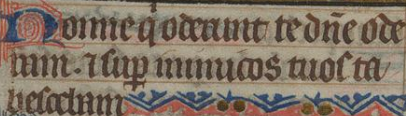 Nonne q̇ oderunt te dn̄e ode
ram. ⁊ sup̱ inimicos tuos ta
bescebam